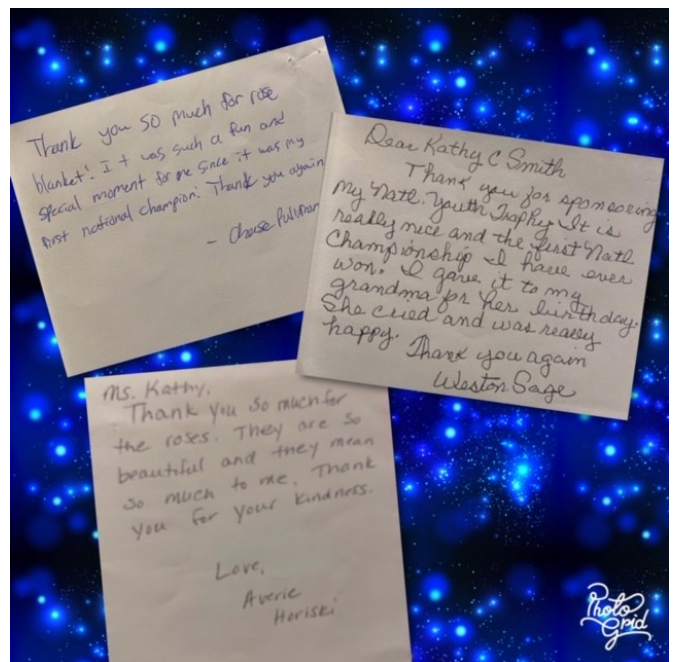 Thank you so much for rose
blanket! It was such a fun and
special moment for me since it was my
first national champion! Thank you again
- Chase
Dear Kathy C Smith
Thank you for sponsoring
my Natl. Youth Trophy. It is
really nice and the first Natl
Championship I have ever
won. I gave it to my
grandma for her birthday.
She cried and was really
happy.
Thank you again
Weston Sage
Ms. Kathy,
Thank you so much for
the roses. They are so
beautiful and they mean
so much to me. Thank
you for your kindness.
Love,
Averie
Horiski
Photo
Grid